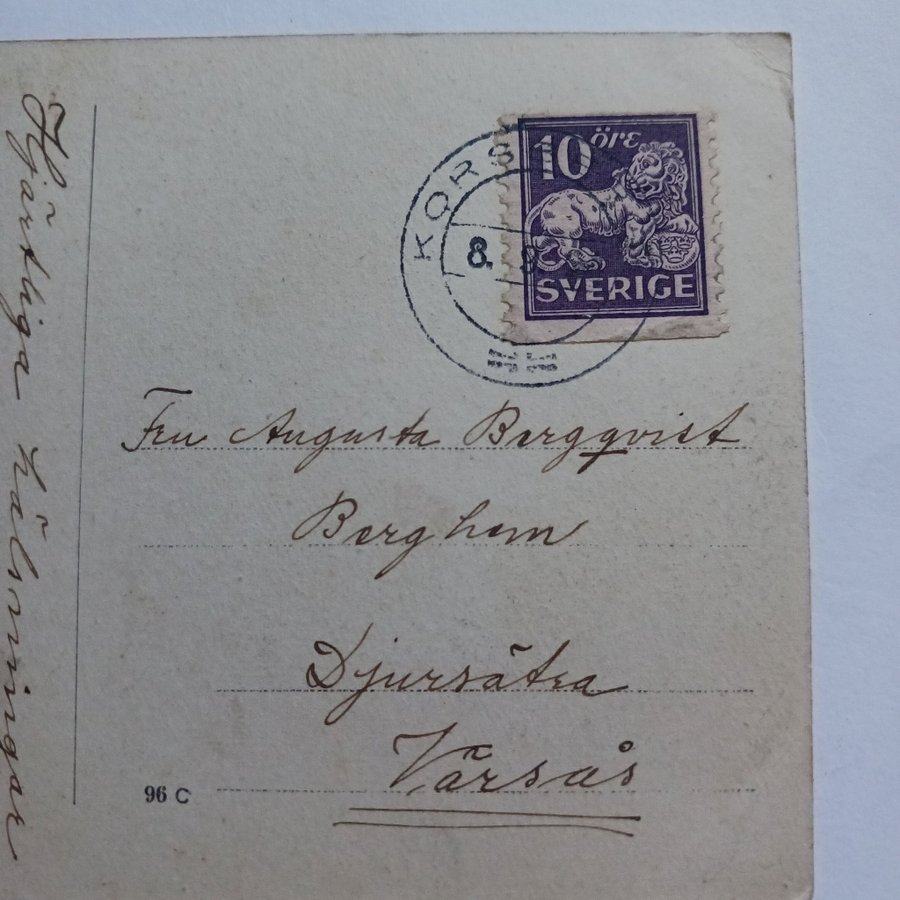 Hjärtliga hälsningar
10 öre
SVERIGE
KORS
8.
Fru Augusta Bergqvist
Berghem
Djursätra
Värsås
96 C